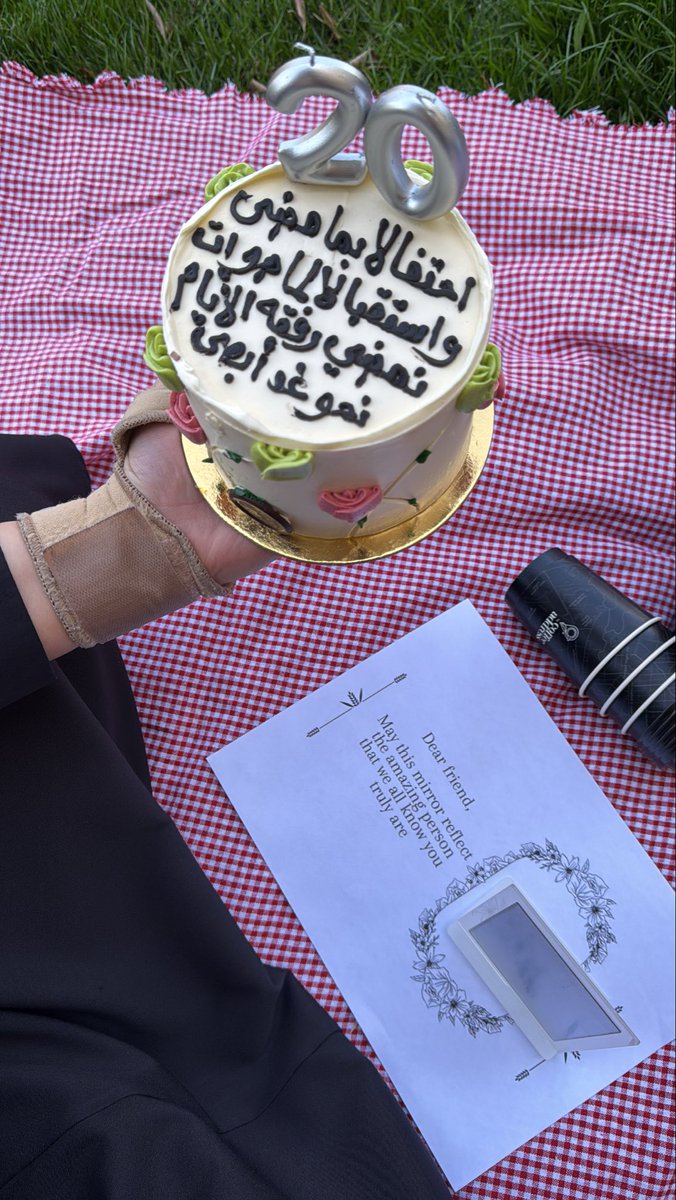 20
احتفالا بما مضى
واستقبالا لما هو آت
نمضي رفقه الأيام
نحو غد أبهى
Dear friend,
May this mirror reflect
the amazing person
that we all know you
truly are
coffee
address